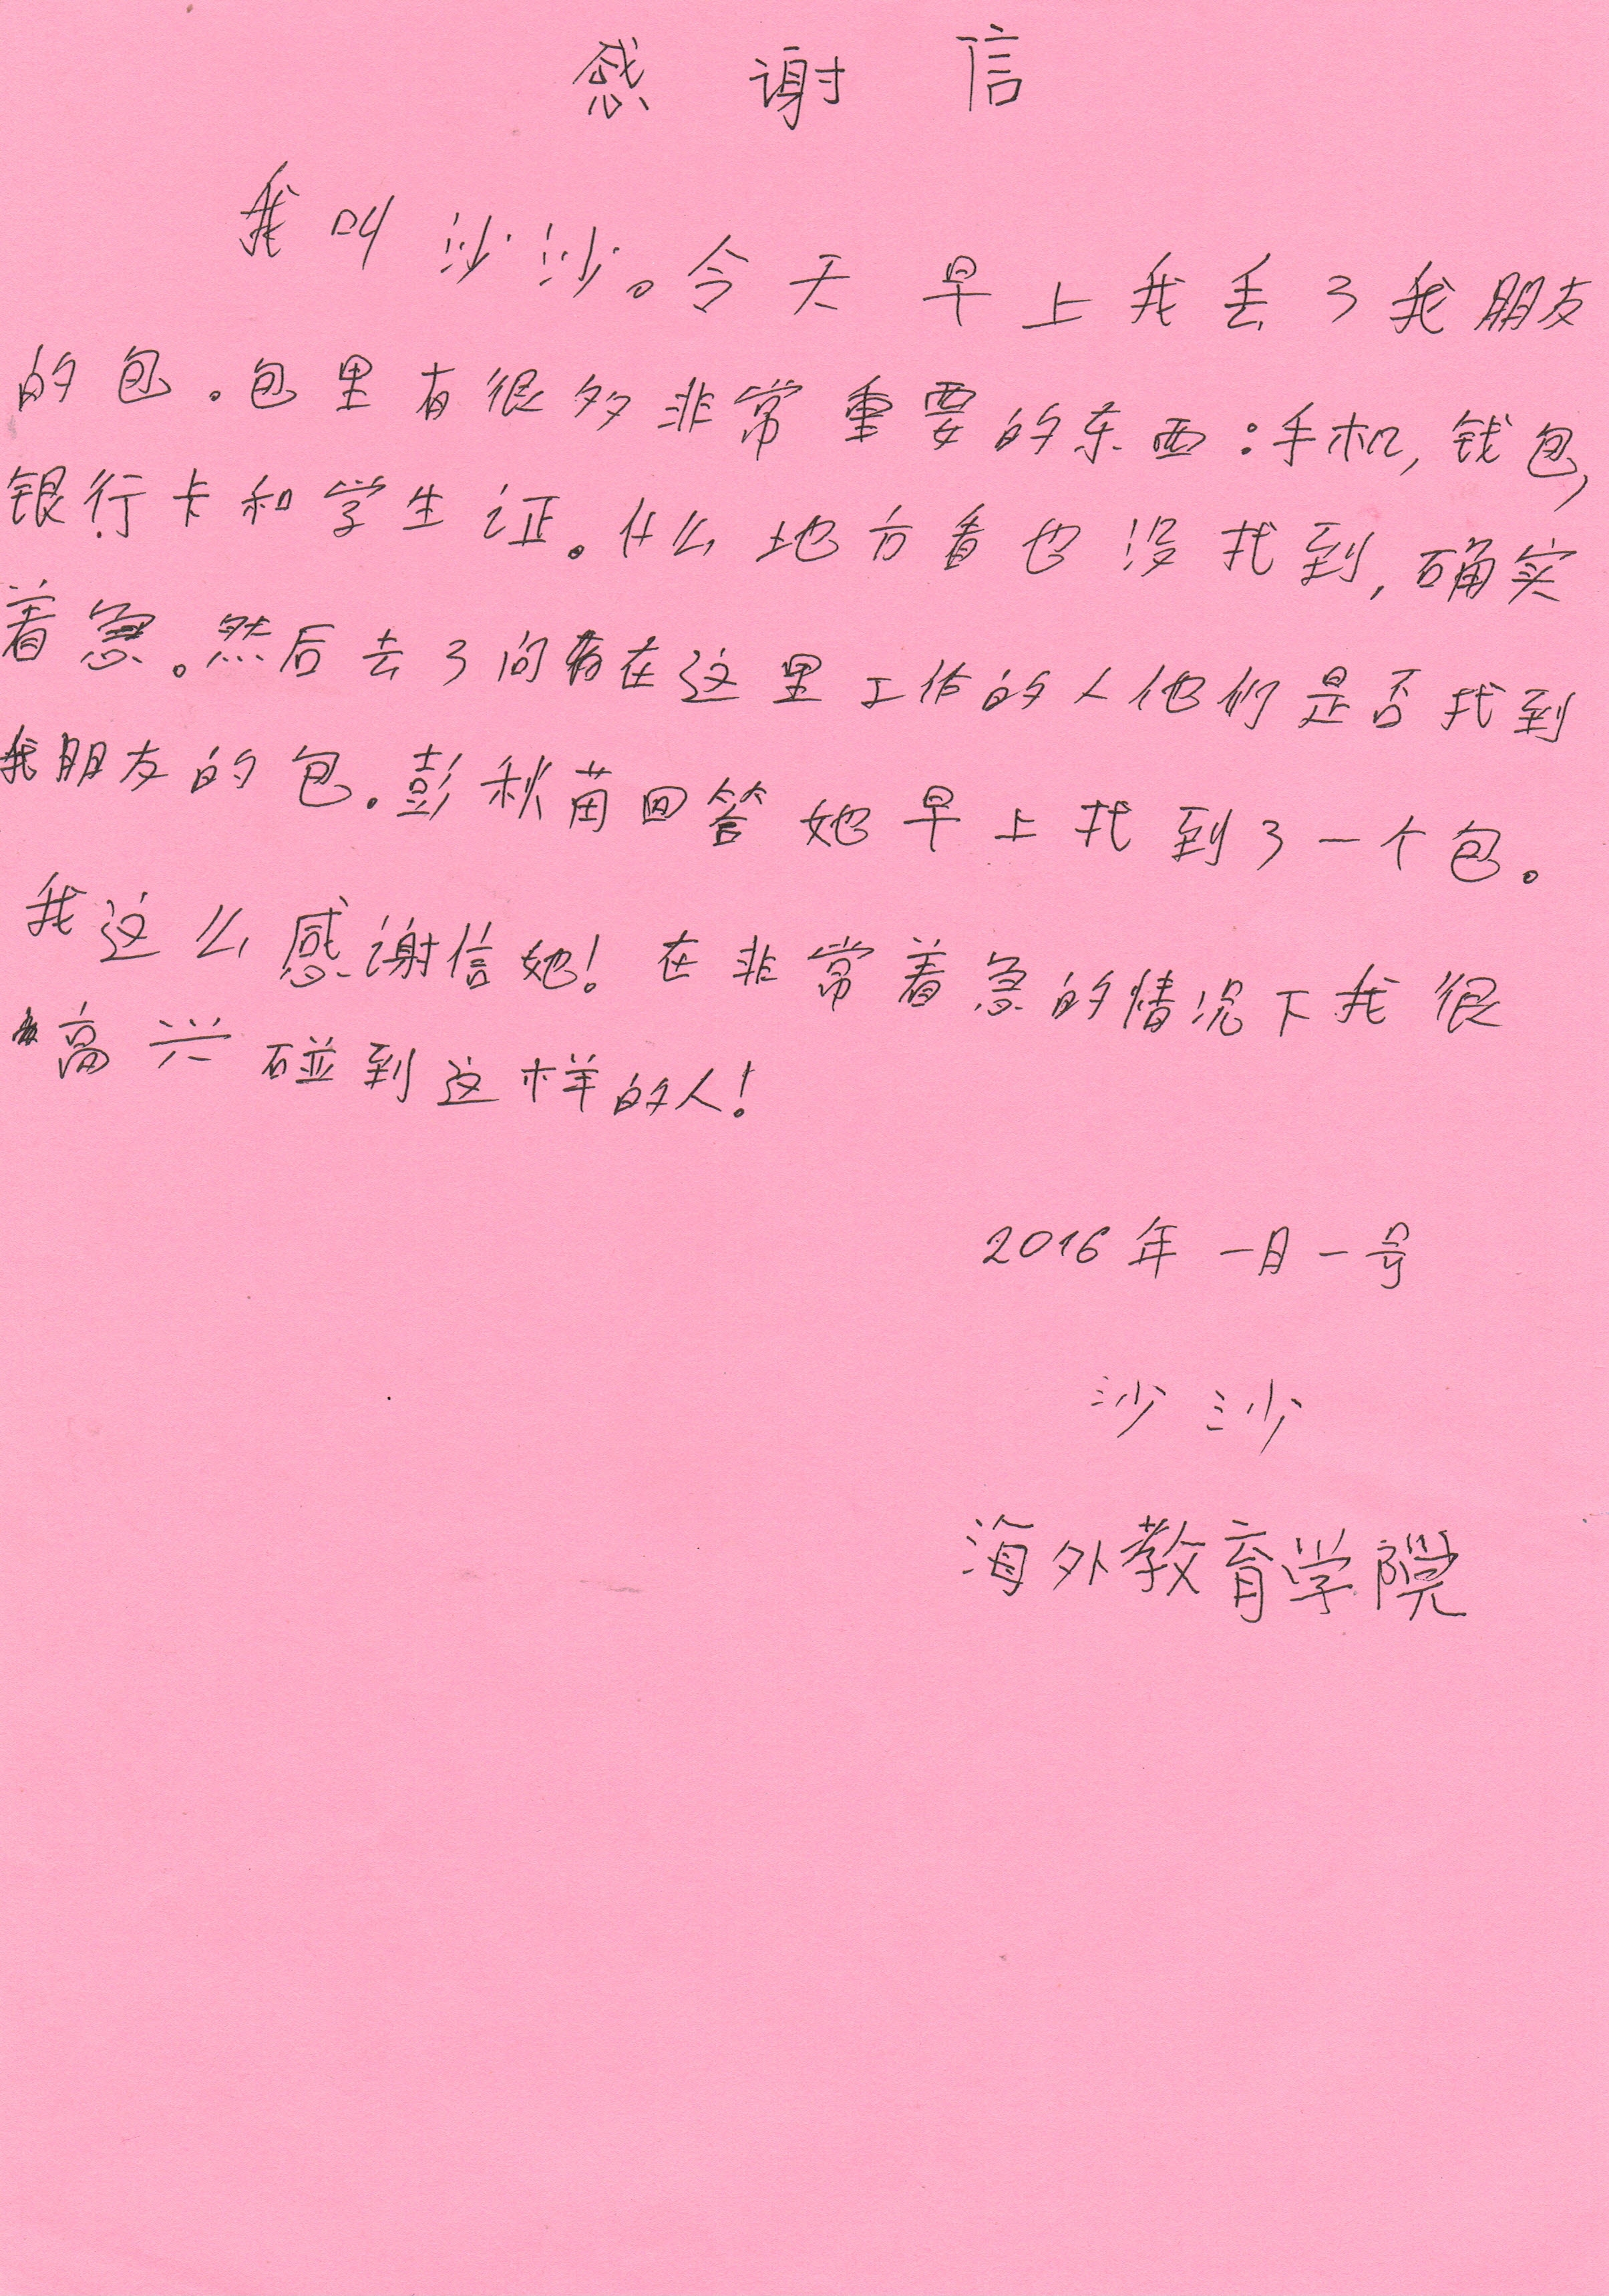 感谢信
我叫沙沙。今天早上我丢了我朋友
的包。包里有很多非常重要的东西:手机,钱包,
银行卡和学生证。什么地方看也没找到,确实
着急。然后去了问在这里工作的人他们是否找到
我朋友的包。彭秋苗回答她早上找到了一个包。
我这么感谢信她!在非常着急的情况下我很
高兴碰到这样的人!
2016年一月一号
沙沙
海外教育学院